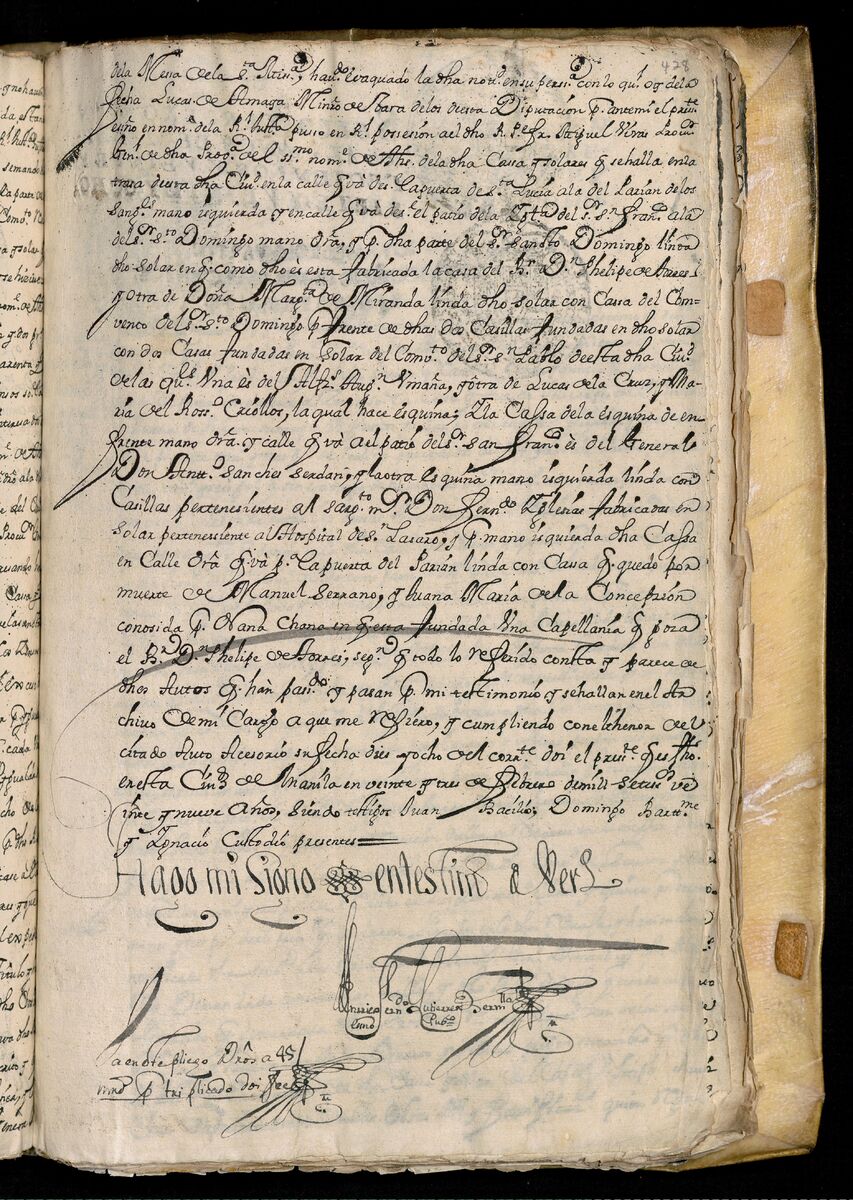 428
dela Messa dela S.ta Misa, haṽdo evaquado la dha notn en su persna con lo ql. y dela
fecha Lucas de Arriaga Minro de Vara delos desta Diputacion p. ante mi el press.te
essno en nome dela Rl. Justta puso en Rl. possesion a el dho R. Pe fr. Miguel Vivas Procuor
Genl. de dha Provcia del ssmo nome de Ihs. dela dha Cassa y solares q se halla en la
traza desta dha Ciud en la calle q vâ dese la puerta de Sta Lucia a la del Parian delos
Sangles mano isquierda y en calle q vâ dese el patio dela Yglla del Sr. Sn Franco ala
del Sr. Sto Domingo mano dra, y p. dha parte del Sr. Santto Domingo linda
dho solar en q. como dho ès esta fabricada la casa del Br. Dn Phelipe de Torres
y otra de Doña Margta de Miranda linda dho solar con Cassa del Com-
vento del Sr. Sto Domingo p. frente de dhas dos Casillas fundadas en dho solar
con dos Casas fundadas en solar del Convto del Sr. Sn Pablo de esta dha Ciud
de las qles Vna ès del Alfs. Augn Vmaña, y otra de Lucas dela Cruz, y Ma-
ria del Rosso Criollos, la qual hace esquina; Y la Cassa dela esquina de en-
frente mano dra. y calle q vâ a el patio del Sr. san Franco ès del General
Don Antto sanches serdan; y la otra esquina mano isquierda linda con
Casillas pertenesientes al sargto mr. Don Fernndo Yglesias fabricadas en
solar pertenesiente al Hospital de Sn Lazaro, y p. mano isquierda dha Cassa
en Calle dra q vâ pa la puerta del Parián linda con Cassa q. quedo por
muerte de Manuel Serrano, y Juana Maria de la Concepsion
conosida p. Ñana Chana en q esta fundada Vna Capellania q goza
el Br. Dn Phelipe de Torres; segn q todo lo referido consta y parece de
dhos Autos q. hán pasado y pasan p. mi testimonio y se hallan en el Ar
chivo de mi Cargo a que me refiero, y cumpliendo con el thenor del
citado Auto Acesorio su fecha dies y ocho del corrte. doi el prete q es fho.
en esta Ciud de Manila en veinte y tres de Febrero de mill setess ve
inte y nueve Años, siendo testigos Juan Bacilio; Domingo Bartme
y Ygnacio Custodio presentes
Hago mi signo en testimo de Verd
Enrrico Hdo Gutierrez Hermlla
essno Pubco
Va en este pliego Dros a 45
mrs p triplicado doi fee